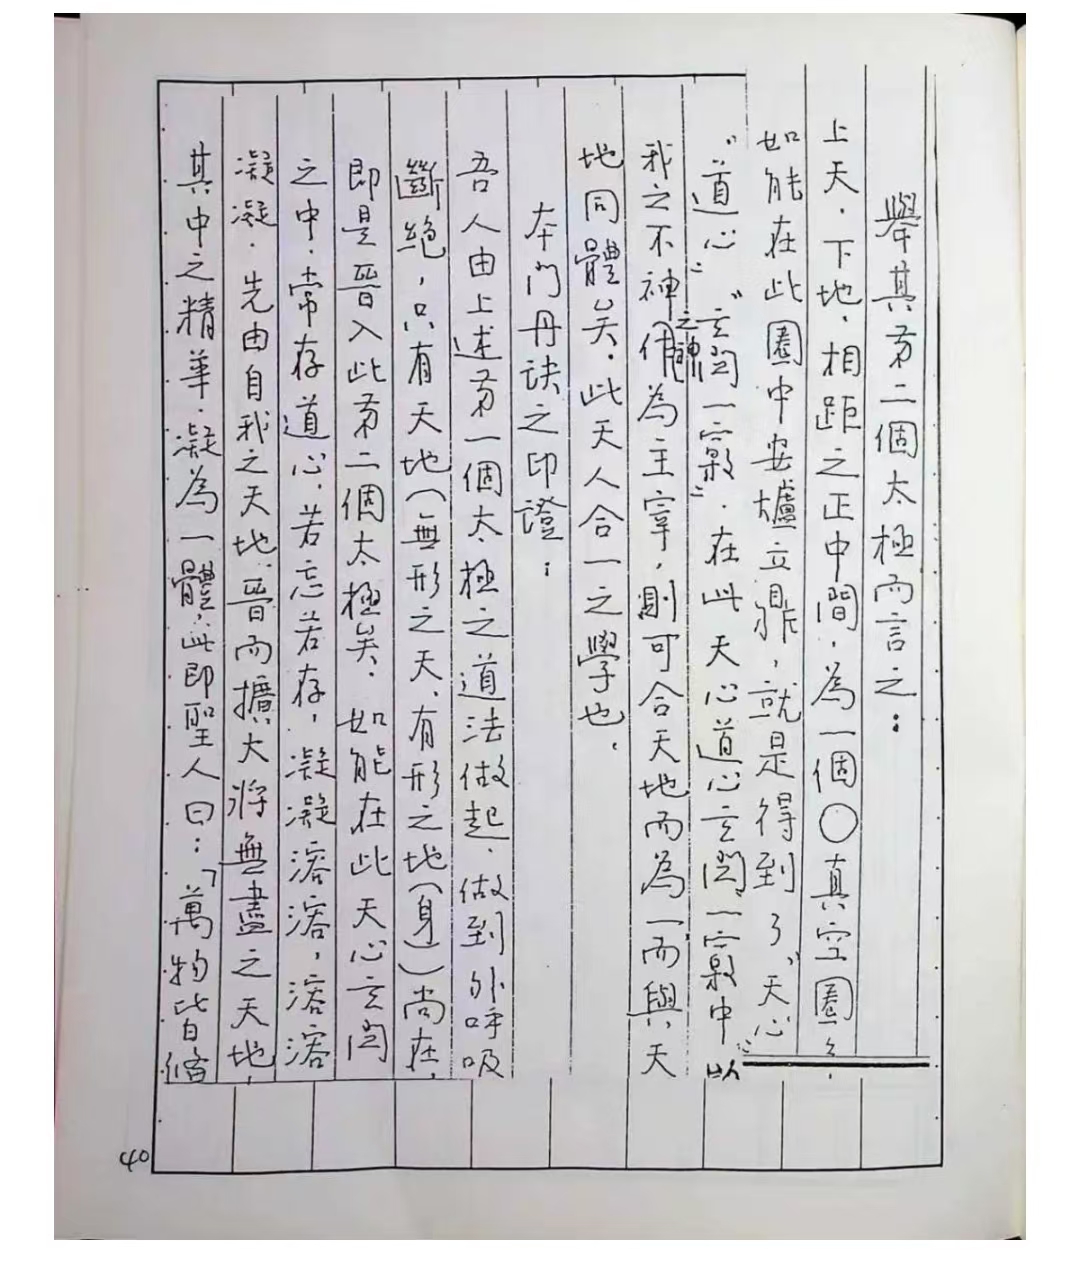 舉其第二個太極而言之：
上天．下地．相距之正中間．為一個○真空圈
如能在此圈中安爐立鼎，就是得到了“天心”
“道心”“玄関一竅”．在此天心道心玄関一竅中以
我之不神之神為主宰，則可合天地而為一而與天
地同體矣．此天人合一之學也．
本門丹訣之印證：
吾人由上述第一個太極之道法做起．做到外呼吸
斷絶，只有天地(無形之天．有形之地(身)尚在．
即是晉入此第二個太極矣．如能在此天心玄関
之中．常存道心．若忘若存，凝凝溶溶，溶溶
凝凝．先由自我之天地．晉而擴大將無盡之天地
其中之精華．凝為一體．此即聖人曰：「萬物皆備
40